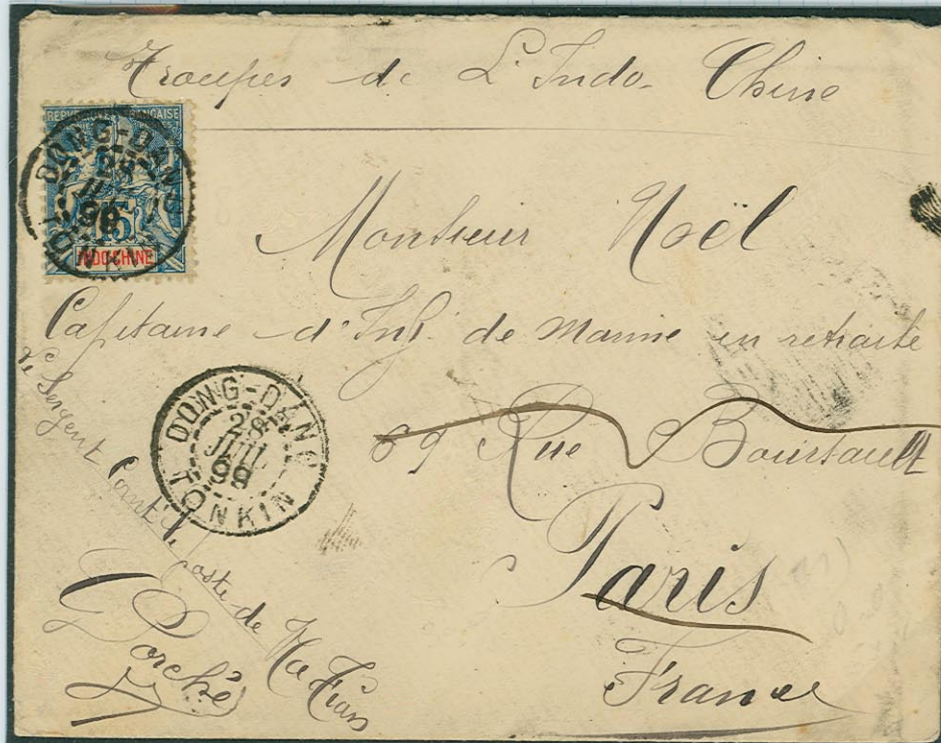 Troupes de L'Indo-Chine
RÉPUBLIQUE FRANÇAISE
15
INDO-CHINE
DONG-DANG
28
JUIL
99
TONKIN
Monsieur Noël
Capitaine d'Inf. de Marine en retraite
69 Rue Boursault
Paris
France
DONG-DANG
28
JUIL
99
TONKIN
Le Sergent Comt le poste de
Porché